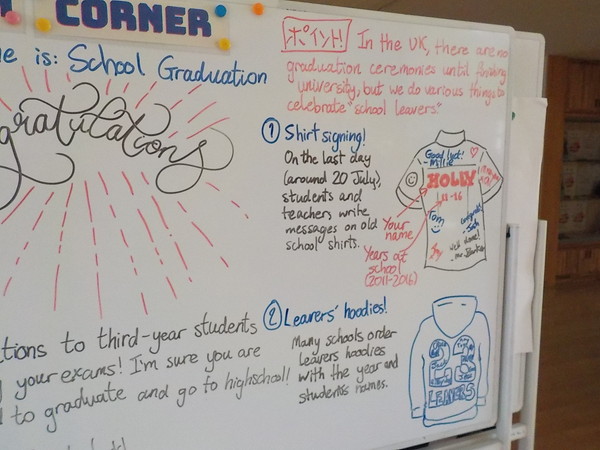 CORNER
e is: School Graduation
gratulations
tions to third-year students
your exams! I'm sure you are
to graduate and go to highschool!
ポイント!
In the UK, there are no
graduation ceremonies until finishing
university, but we do various things to
celebrate "school leavers."
① Shirt signing!
On the last day
(around 20 July),
students and
teachers write
messages on old
school shirts.
Good luck!
Millie
HOLLY
11-16
Tom
Your
name
Years at
school
(2011-2016)
well done!
② Leavers' hoodies!
Many schools order
leavers hoodies
with the year and
students names.
LEAVERS